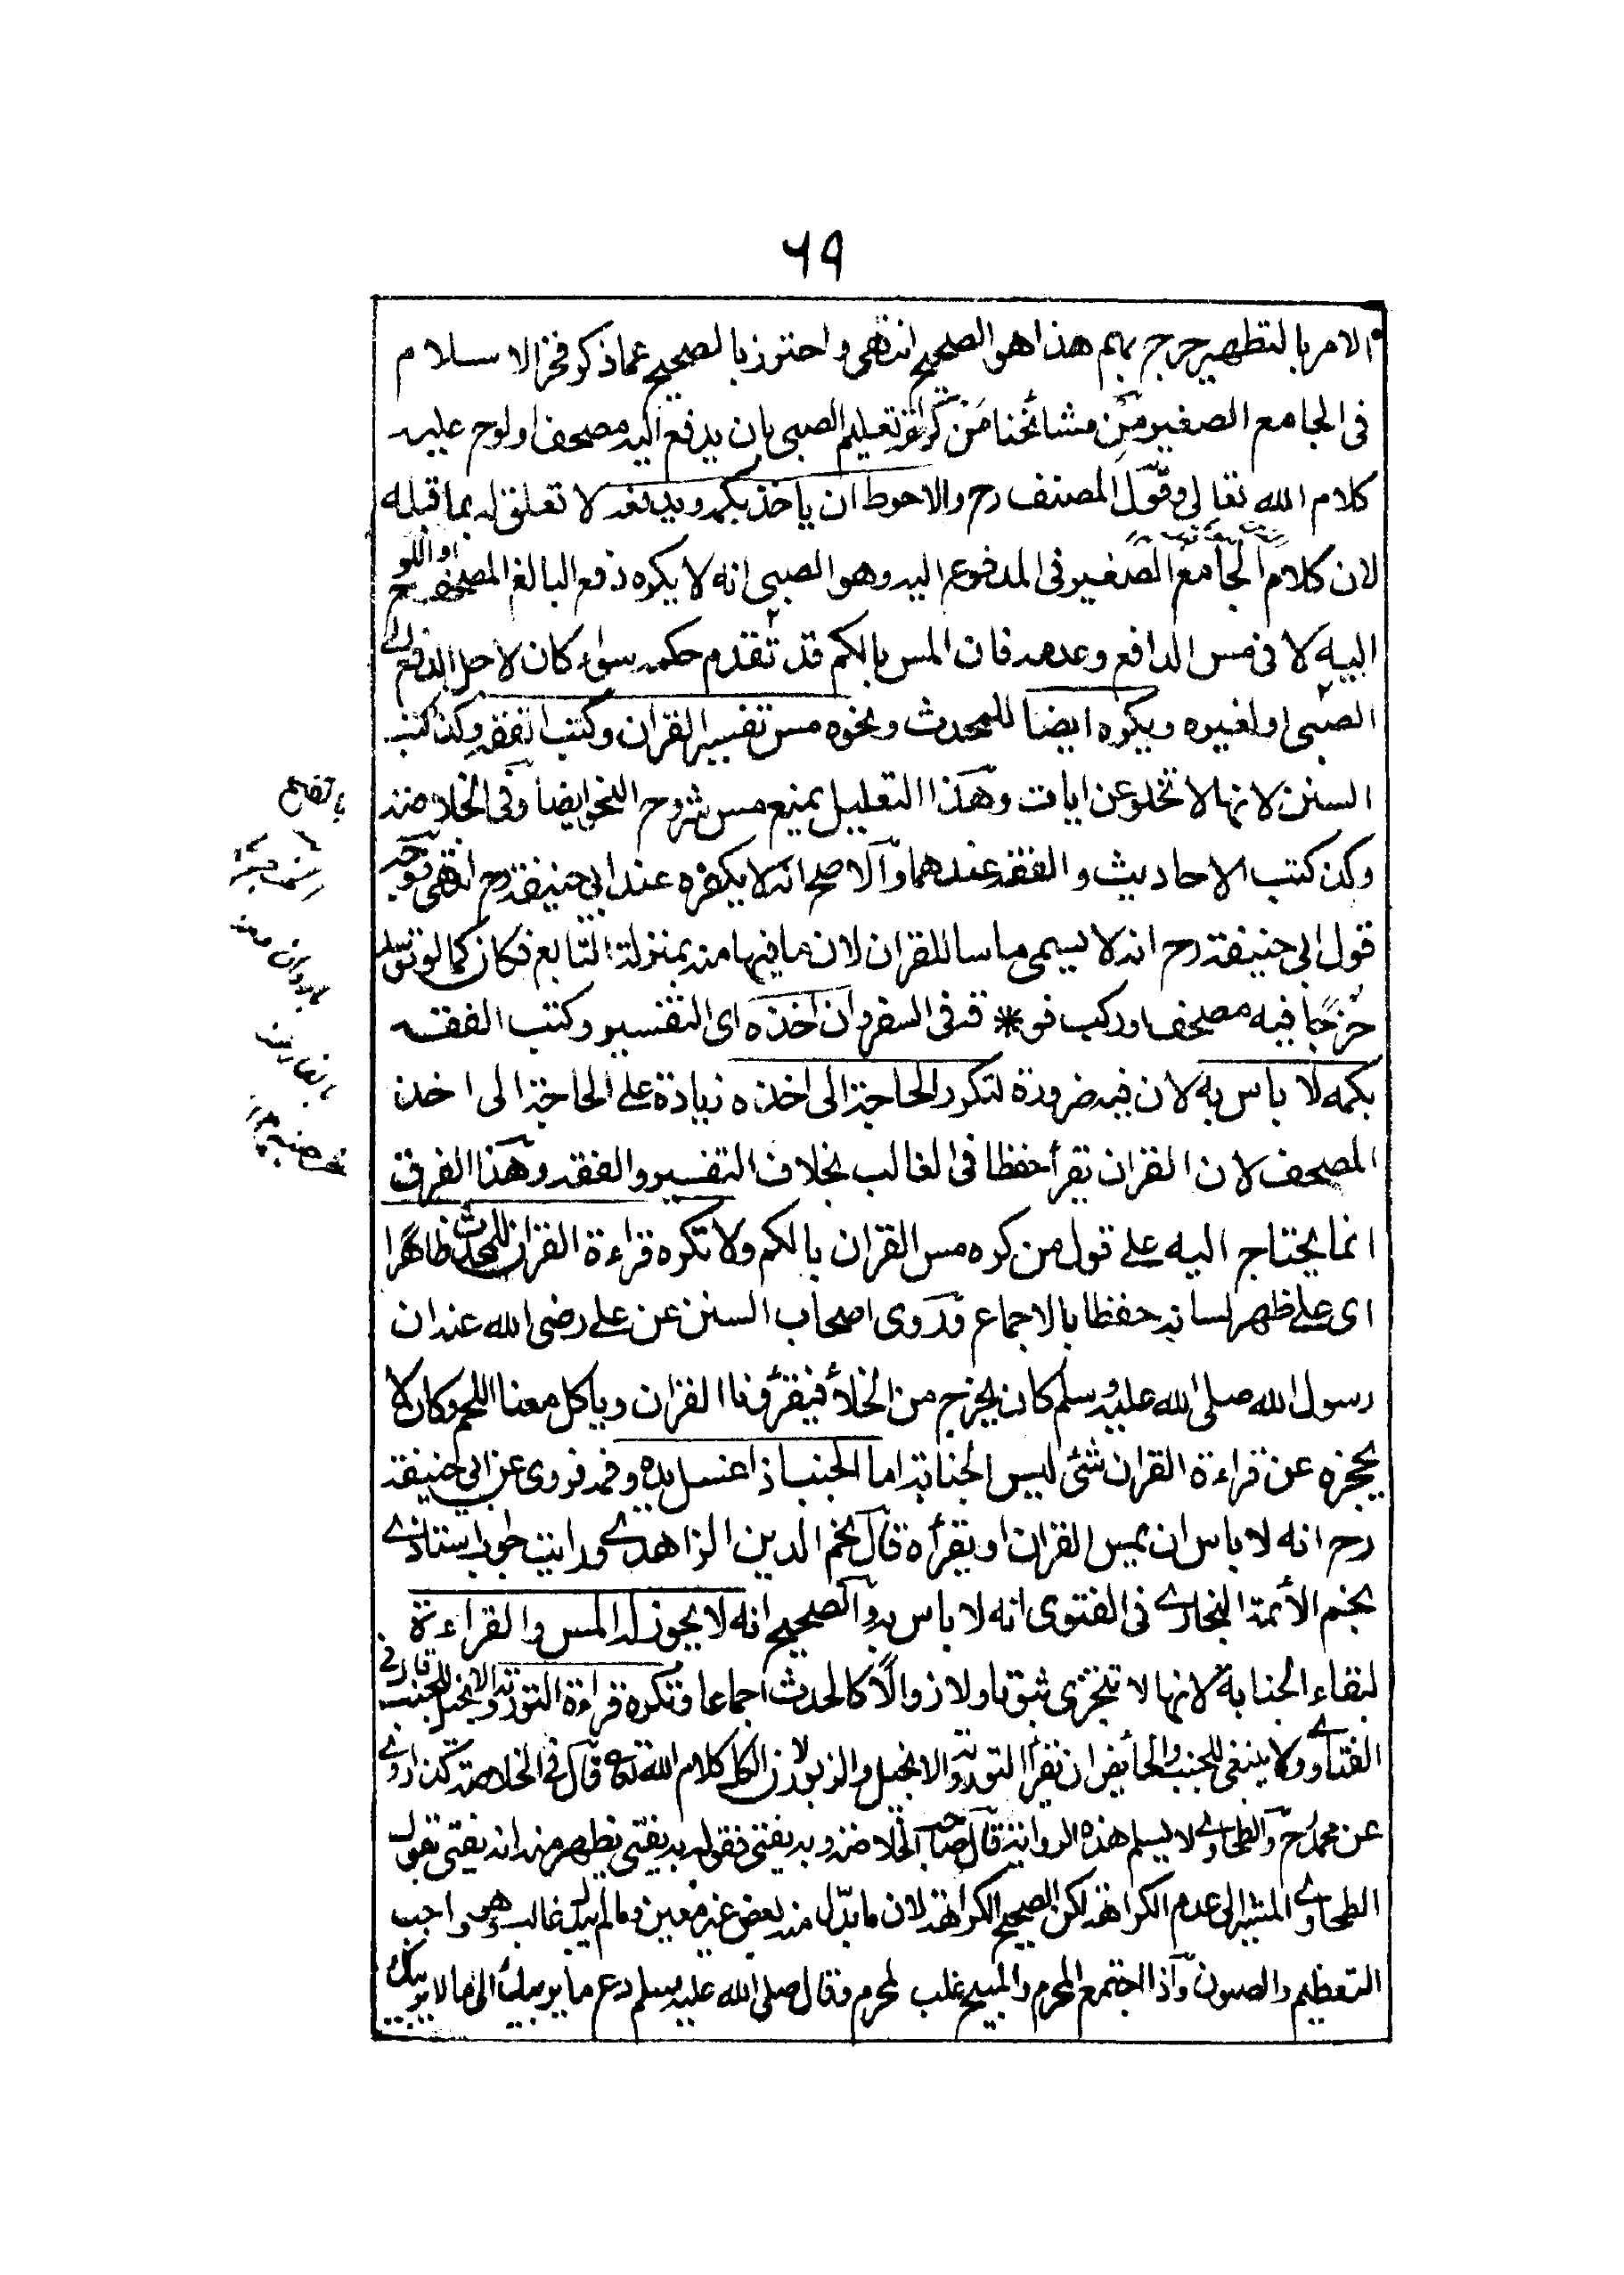 ٦٩
الامر بالتطهير حرج بهم هذا هو الصحيح انتهى واحترز بالصحيح عما ذكر فخر الاسلام
فى الجامع الصغير من مشائخنا من كره تعليم الصبى بان يدفع اليه مصحف او لوح عليه
كلام الله تعالى وقول المصنف رح والاحوط ان ياخذ بكمه ويدفعه لا تعلق له بما قبله
لان كلام الجامع الصغير فى المدفوع اليه وهو الصبى انه لا يكره دفع البالغ المصحف او اللوح
اليه لا فى مس الدافع وعدمه فان المس بالكم قد تقدم حكمه سواء كان لاجل الدفع الى
الصبى او لغيره ويكره ايضا للمحدث ونحوه مس تفسير القران وكتب الفقه وكذا كتب
السنن لانها لا تخلو عن ايات وهذا التعليل يمنع مس شروح النحو ايضا وفى الخلاصة
وكذا كتب الاحاديث والفقه عندهما والاصح انه لا يكره عند ابى حنيفة رح انتهى وجه
قول ابى حنيفة رح انه لا يسمى ماسا للقران لان ما فيها منه بمنزلة التابع فكان كما لو توسد
خرجا فيه مصحف او ركب فوقه فى السفر وان اخذه اى التفسير وكتب الفقه
بكمه لا باس به لان فيه ضرورة لتكرر الحاجة الى اخذه زيادة على الحاجة الى اخذ
المصحف لان القران يقرأ حفظا فى الغالب بخلاف التفسير والفقه وهذا الفرق
انما يحتاج اليه على قول من كره مس القران بالكم ولا تكره قراءة القران للمحدث ظاهرا
اى على ظهر لسانه حفظا بالاجماع وروى اصحاب السنن عن على رضى الله عنه ان
رسول الله صلى الله عليه وسلم كان يخرج من الخلاء فيقرؤنا القران وياكل معنا اللحم وكان لا
يحجزه عن قراءة القران شئ ليس الجنابة اما الجنب اذا غسل يده وفمه فروى عن ابى حنيفة
رح انه لا باس ان يمس القران او يقرأه قال نجم الدين الزاهدى ورايت جواب استاذى
نجم الأئمة البخارى فى الفتوى انه لا باس به والصحيح انه لا يجوز له المس والقراءة
لبقاء الجنابة لانها لا تتجزى ثبوتا ولا زوالا كالحدث اجماعا وتكره قراءة التورية والانجيل للجنب قال فى
الفتاوى ولا ينبغى للجنب والحائض ان تقرأ التورية والانجيل والزبور لان الكل كلام الله تعالى قال فى الخلاصة كذا روى
عن محمد رح والطحاوى لا يسلم هذه الرواية قال صاحب الخلاصة وبه يفتى فقوله به يفتى يظهر منه انه يفتى بقول
الطحاوى المشير الى عدم الكراهة لكن الصحيح الكراهة لان ما بدل منه بعض غير معين وما لم يبدل غالب وهو واجب
التعظيم والصون واذا اجتمع المحرم والمبيح غلب المحرم وقال صلى الله عليه وسلم دع ما يريبك الى ما لا يريبك